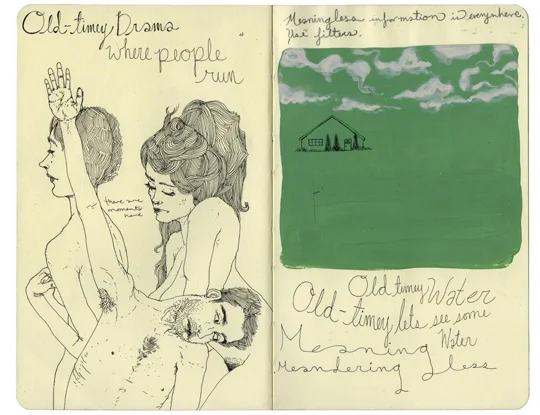 Old-timey Drama
Where people
run
there are
moments
here
Meaningless information is everywhere.
Use filters.
Old timey Water
Old-timey, lets see some
Meaning Water
Meandering less